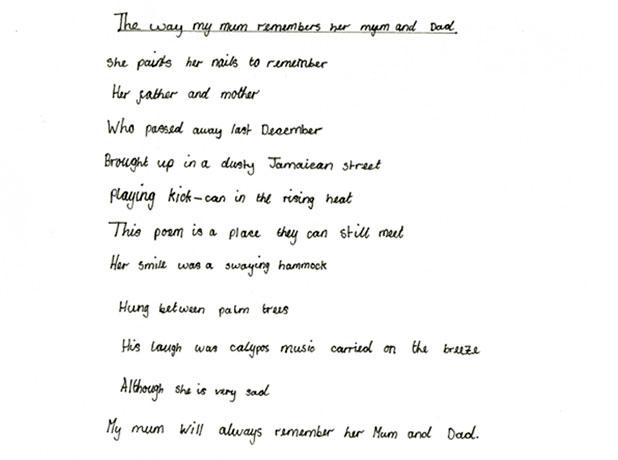 The way my mum remembers her mum and Dad.
she paints her nails to remember
Her father and mother
Who passed away last December
Brought up in a dusty Jamaican street
Playing kick-can in the rising heat
This poem is a place they can still meet
Her smile was a swaying hammock
Hung between palm trees
His laugh was calypos music carried on the breeze
Although she is very sad
My mum will always remember her Mum and Dad.